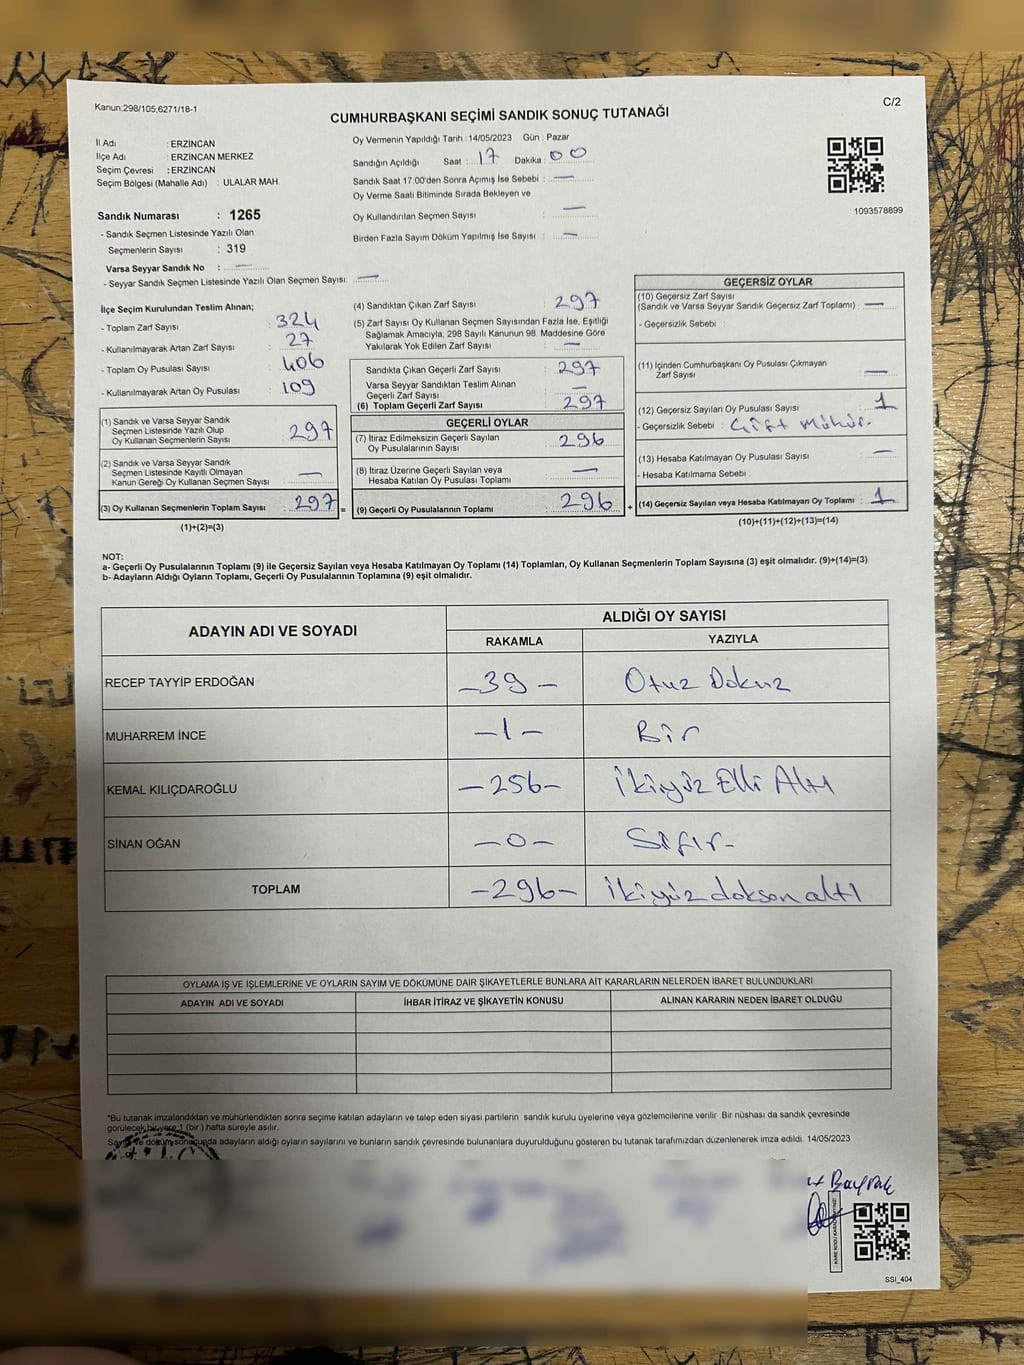 Kanun:298/105,6271/18-1
C/2
CUMHURBAŞKANI SEÇİMİ SANDIK SONUÇ TUTANAĞI
İl Adı : ERZİNCAN
İlçe Adı : ERZİNCAN MERKEZ
Seçim Çevresi : ERZİNCAN
Seçim Bölgesi (Mahalle Adı) : ULALAR MAH.
Sandık Numarası : 1265
- Sandık Seçmen Listesinde Yazılı Olan
Seçmenlerin Sayısı : 319
Varsa Seyyar Sandık No : —
- Seyyar Sandık Seçmen Listesinde Yazılı Olan Seçmen Sayısı: —
Oy Vermenin Yapıldığı Tarih : 14/05/2023 Gün : Pazar
Sandığın Açıldığı Saat : 17 Dakika : 00
Sandık Saat 17:00'den Sonra Açımış İse Sebebi : —
Oy Verme Saati Bitiminde Sırada Bekleyen ve
Oy Kullandırılan Seçmen Sayısı : —
Birden Fazla Sayım Döküm Yapılmış İse Sayısı : —
1093578899
İlçe Seçim Kurulundan Teslim Alınan;
- Toplam Zarf Sayısı : 324
- Kullanılmayarak Artan Zarf Sayısı : 27
- Toplam Oy Pusulası Sayısı : 406
- Kullanılmayarak Artan Oy Pusulası : 109
(1) Sandık ve Varsa Seyyar Sandık
Seçmen Listesinde Yazılı Olup
Oy Kullanan Seçmenlerin Sayısı : 297
(2) Sandık ve Varsa Seyyar Sandık
Seçmen Listesinde Kayıtlı Olmayan
Kanun Gereği Oy Kullanan Seçmen Sayısı : —
(3) Oy Kullanan Seçmenlerin Toplam Sayısı : 297 =
(1)+(2)=(3)
(4) Sandıktan Çıkan Zarf Sayısı : 297
(5) Zarf Sayısı Oy Kullanan Seçmen Sayısından Fazla İse, Eşitliği
Sağlamak Amacıyla, 298 Sayılı Kanunun 98. Maddesine Göre
Yakılarak Yok Edilen Zarf Sayısı : —
Sandıkta Çıkan Geçerli Zarf Sayısı : 297
Varsa Seyyar Sandıktan Teslim Alınan
Geçerli Zarf Sayısı : —
(6) Toplam Geçerli Zarf Sayısı : 297
GEÇERLİ OYLAR
(7) İtiraz Edilmeksizin Geçerli Sayılan
Oy Pusulalarının Sayısı : 296
(8) İtiraz Üzerine Geçerli Sayılan veya
Hesaba Katılan Oy Pusulası Toplamı : —
(9) Geçerli Oy Pusulalarının Toplamı : 296 +
GEÇERSİZ OYLAR
(10) Geçersiz Zarf Sayısı
(Sandık ve Varsa Seyyar Sandık Geçersiz Zarf Toplamı) : —
- Geçersizlik Sebebi :
(11) İçinden Cumhurbaşkanı Oy Pusulası Çıkmayan
Zarf Sayısı : —
(12) Geçersiz Sayılan Oy Pusulası Sayısı : 1
- Geçersizlik Sebebi : Çift Mühür.
(13) Hesaba Katılmayan Oy Pusulası Sayısı : —
- Hesaba Katılmama Sebebi :
(14) Geçersiz Sayılan veya Hesaba Katılmayan Oy Toplamı : 1
(10)+(11)+(12)+(13)=(14)
NOT:
a- Geçerli Oy Pusulalarının Toplamı (9) ile Geçersiz Sayılan veya Hesaba Katılmayan Oy Toplamı (14) Toplamları, Oy Kullanan Seçmenlerin Toplam Sayısına (3) eşit olmalıdır. (9)+(14)=(3)
b- Adayların Aldığı Oyların Toplamı, Geçerli Oy Pusulalarının Toplamına (9) eşit olmalıdır.
ADAYIN ADI VE SOYADI
ALDIĞI OY SAYISI
RAKAMLA YAZIYLA
RECEP TAYYİP ERDOĞAN -39- Otuz Dokuz
MUHARREM İNCE -1- Bir
KEMAL KILIÇDAROĞLU -256- İkiyüz Elli Altı
SİNAN OĞAN -0- Sıfır-
TOPLAM -296- İkiyüz doksan altı
OYLAMA İŞ VE İŞLEMLERİNE VE OYLARIN SAYIM VE DÖKÜMÜNE DAİR ŞİKAYETLERLE BUNLARA AİT KARARLARIN NELERDEN İBARET BULUNDUKLARI
ADAYIN ADI VE SOYADI İHBAR İTİRAZ VE ŞİKAYETİN KONUSU ALINAN KARARIN NEDEN İBARET OLDUĞU
*Bu tutanak imzalandıktan ve mühürlendikten sonra seçime katılan adayların ve talep eden siyasi partilerin sandık kurulu üyelerine veya gözlemcilerine verilir Bir nüshası da sandık çevresinde
görülecek bir yere 1 (bir) hafta süreyle asılır.
Sayım ve döküm sonucunda adayların aldığı oyların sayılarını ve bunların sandık çevresinde bulunanlara duyurulduğunu gösteren bu tutanak tarafımızdan düzenlenerek imza edildi. 14/05/2023
Bayrak
SSI_404